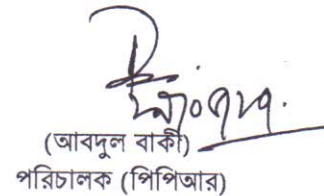 (আবদুল বাকী)
পরিচালক (পিপিআর)